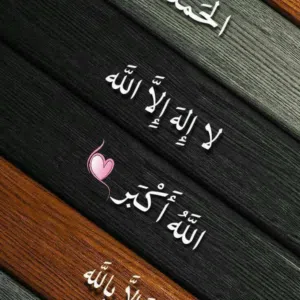 الحمد
لا إِلَهَ إِلاَّ اللَّه
اللَّهُ أَكْبَر
إلا بالله